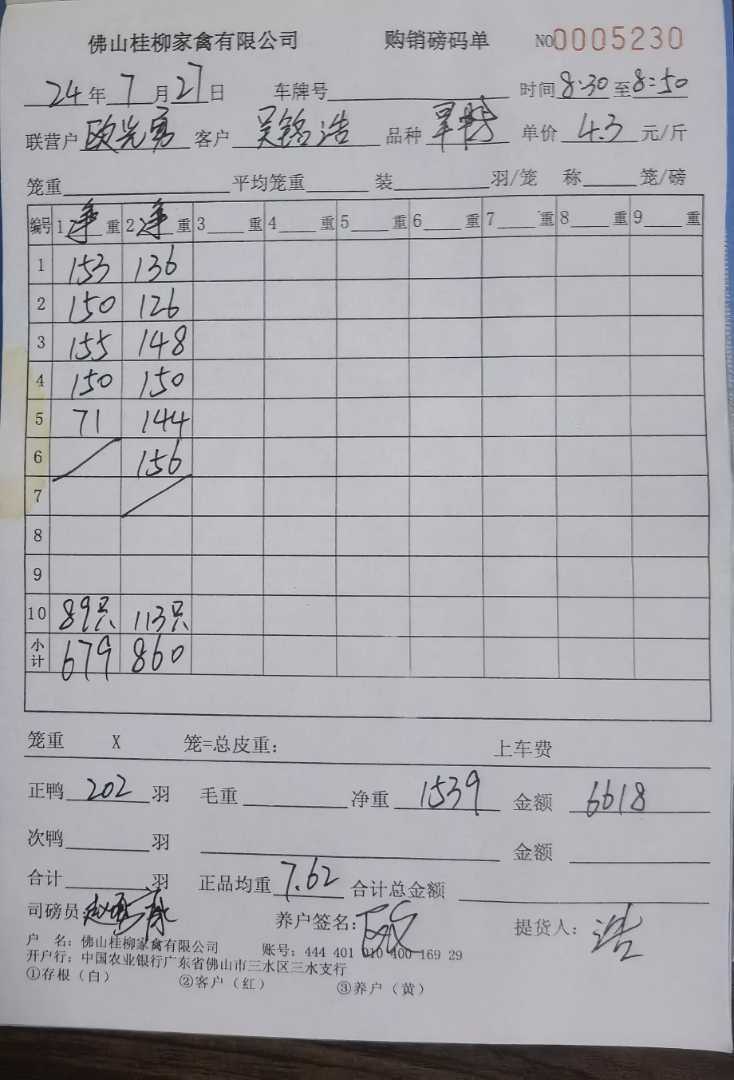 佛山桂柳家禽有限公司 购销磅码单 NO0005230
24年7月27日 车牌号 时间8:30至8:50
联营户 欧光勇 客户 吴铭浩 品种 单价 4.3 元/斤
笼重 平均笼重 装 羽/笼 称 笼/磅
编号 1净重 2净重 3重 4重 5重 6重 7重 8重 9重
1 153 136
2 150 126
3 155 148
4 150 150
5 71 144
6 156
7
8
9
10 89只 113只
小计 679 860
笼重 X 笼=总皮重: 上车费
正鸭 202 羽 毛重 净重 1539 金额 6618
次鸭 羽 金额
合计 羽 正品均重 7.62 合计总金额
司磅员: 养户签名: 提货人: 浩
户 名: 佛山桂柳家禽有限公司 账号: 444 401 010 400 169 29
开户行: 中国农业银行广东省佛山市三水区三水支行
①存根（白） ②客户（红） ③养户（黄）